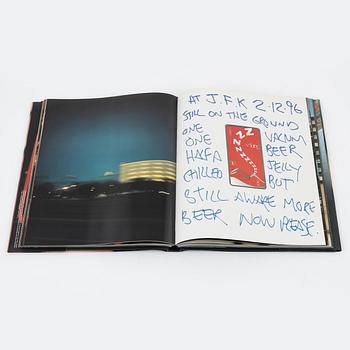 AT J.F.K 2.12.96
STILL ON THE GROUND
ONE VALIUM
ONE BEER
HALF A JELLY
CHILLED BUT
STILL AWAKE MORE
BEER NOW PLEASE.